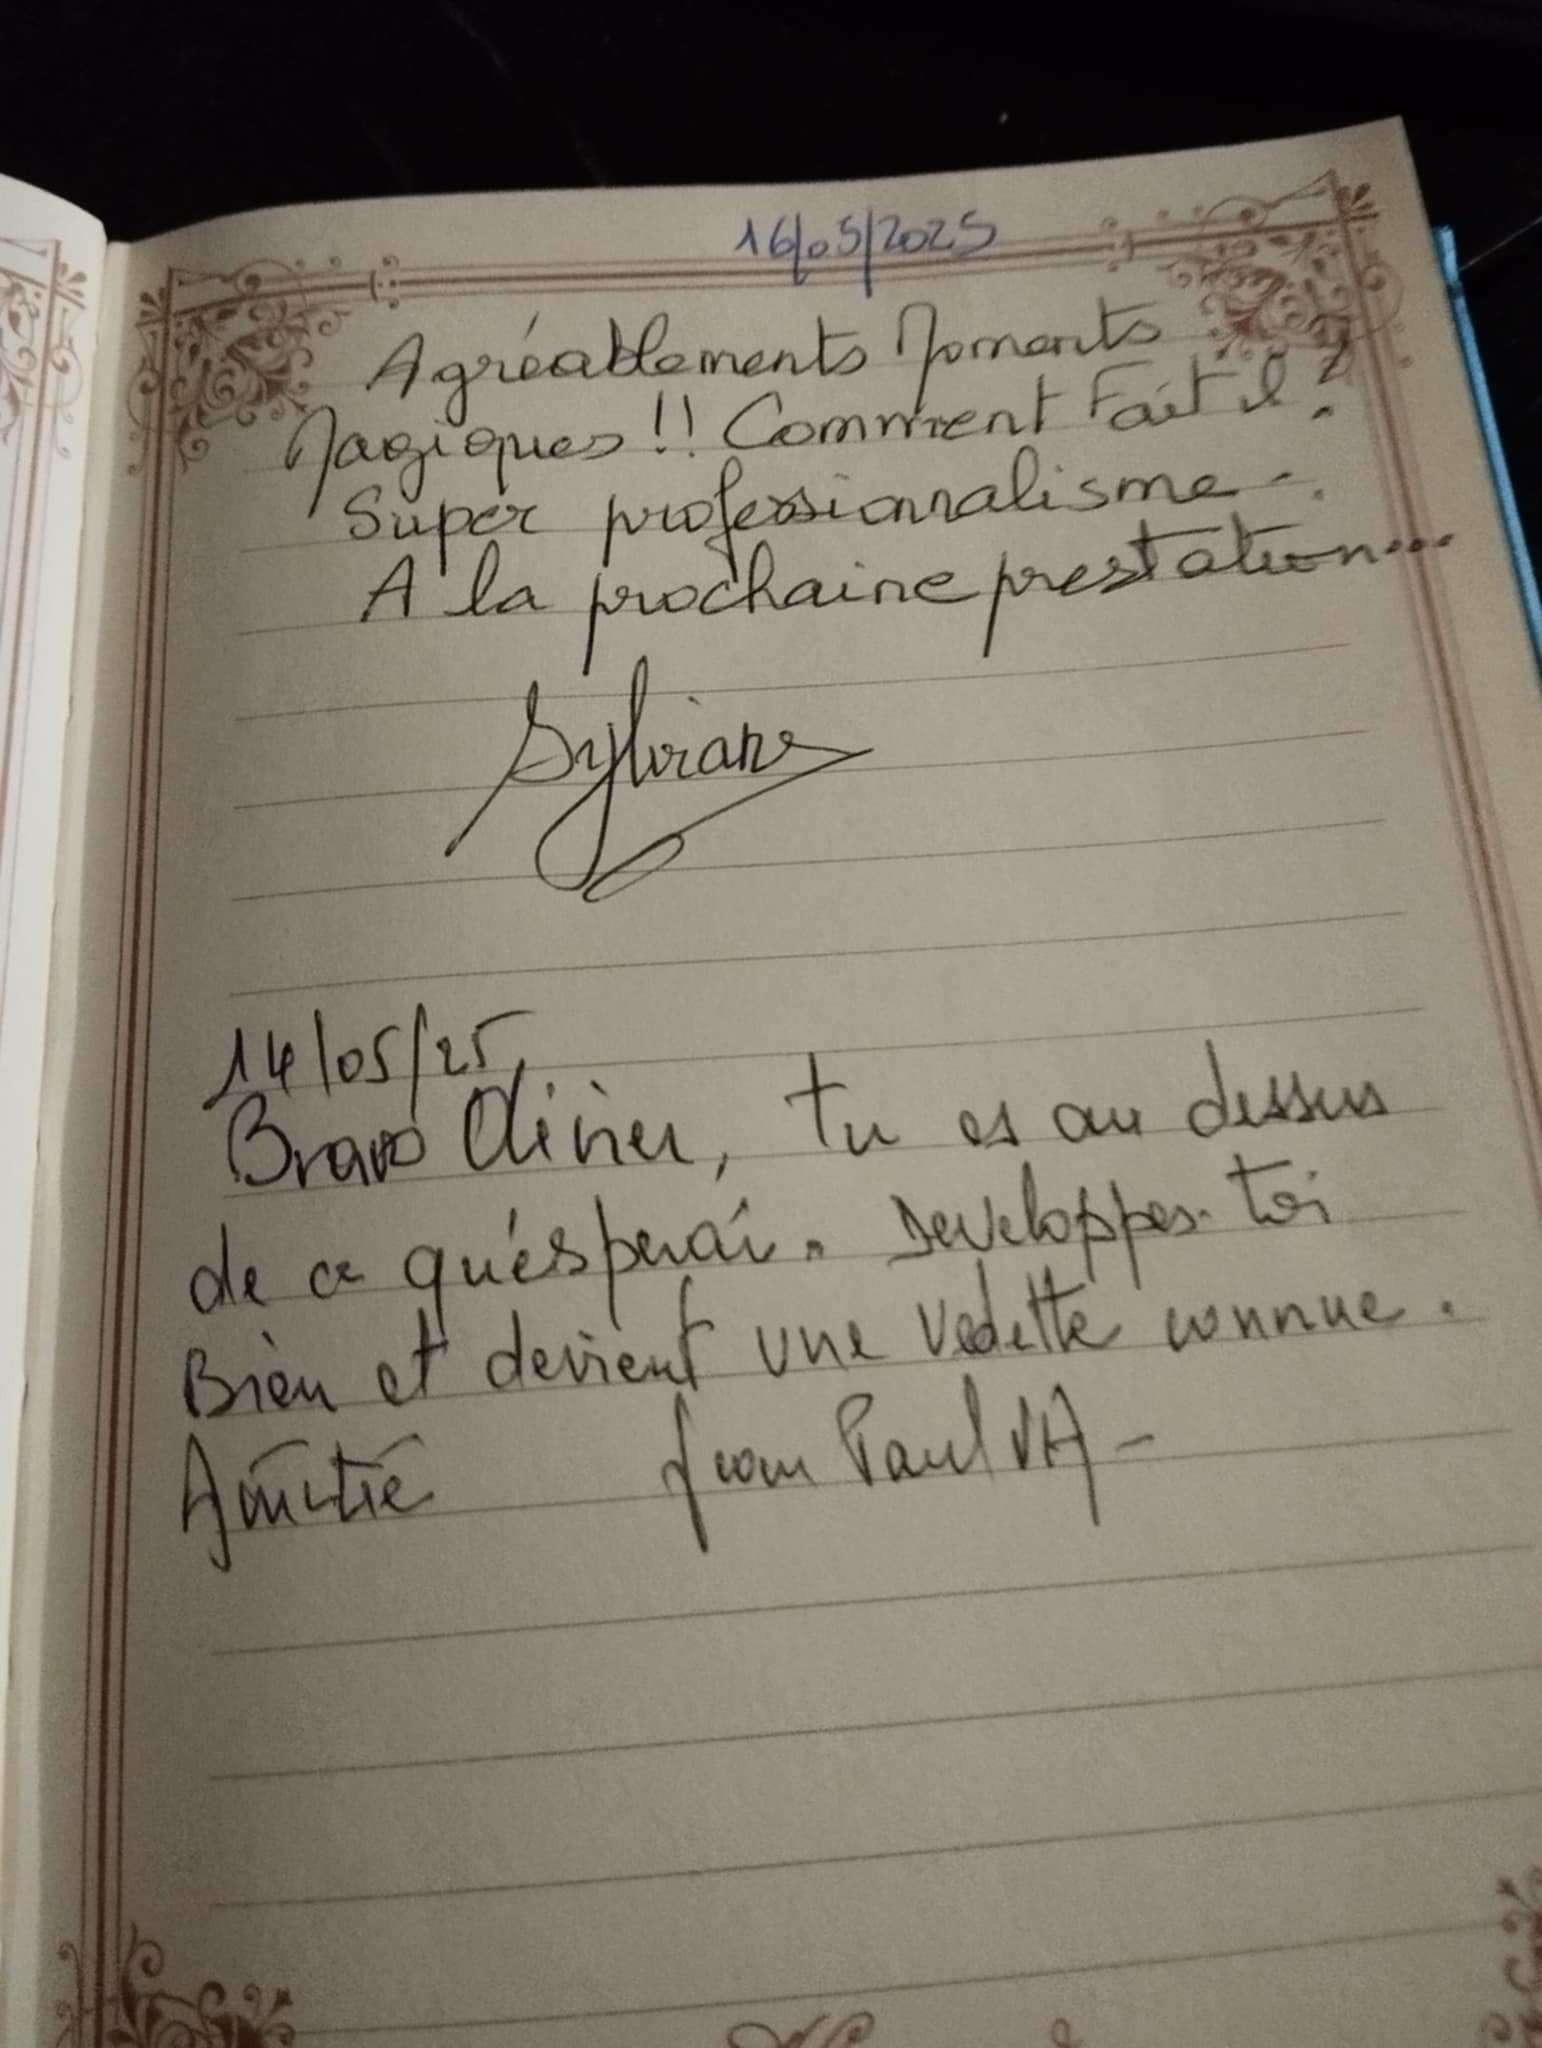 16/05/2025
Agréablements Moments
Magiques !! Comment Fait il ?
Super professionnalisme -.
A la prochaine prestation...
Sylviane
14/05/25
Bravo Olivier, tu es au dessus
de ce qu'ésperai. Developpes-toi
Bien et devient une vedette connue.
Amitié Jean Paul VA -